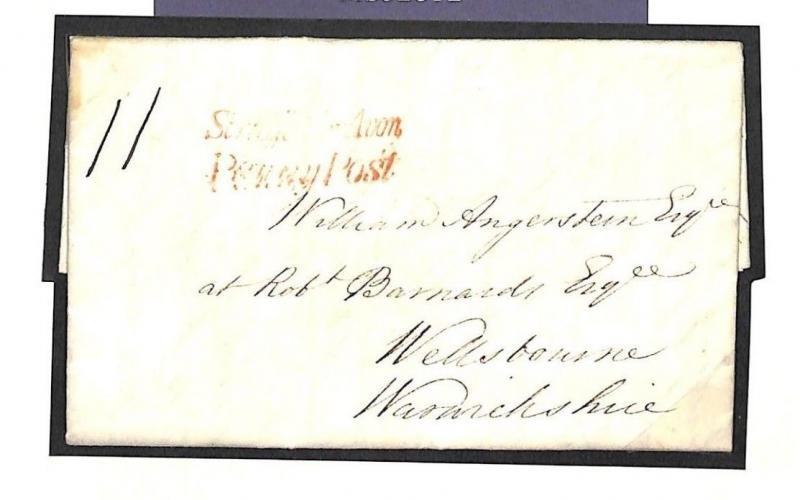 11
Avon
Penny Post
William Angerstein Esqre
at Robt Barnards Esqre
Wellsbourne
Warwickshire